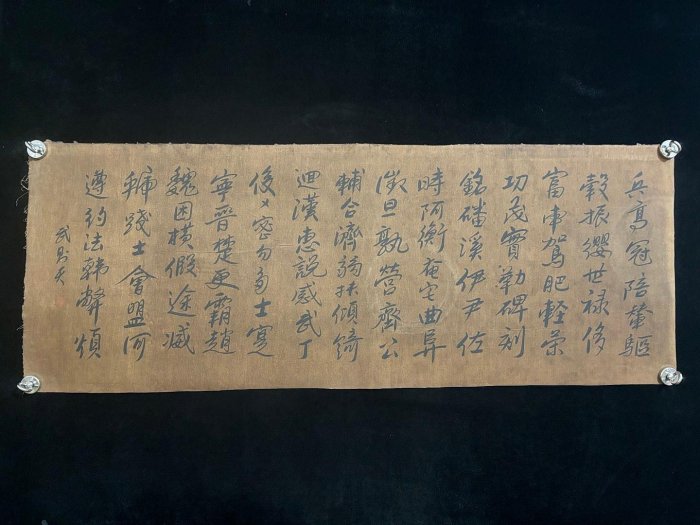 兵高冠陪輦驅
轂振纓世禄侈
富車駕肥輕策
功茂實勒碑刻
銘磻溪伊尹佐
時阿衡奄宅曲阜
微旦孰營齊公
輔合濟弱扶傾綺
迴漢惠說感武丁
俊乂密勿多士寔
寧晉楚更霸趙
魏困橫假途滅
虢踐土會盟何
遵約法韓弊煩
武則天